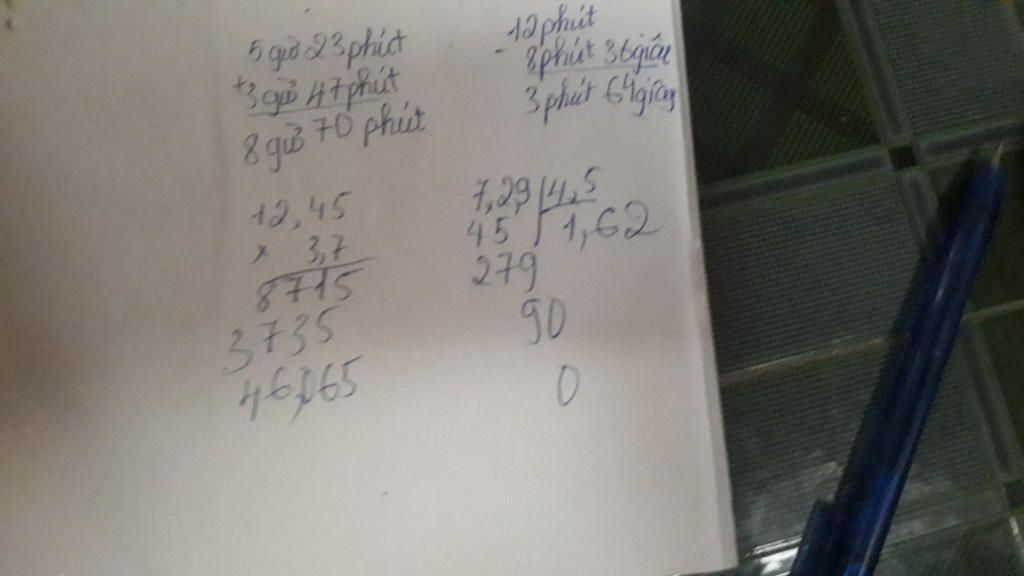 5 giờ 23 phút
+3 giờ 47 phút
8 giờ 70 phút
12 phút
- 8 phút 36 giây
3 phút 64 giây
12,45
x 3,7
8715
3735
46,065
7,29 4,5
45 1,62
279
90
0